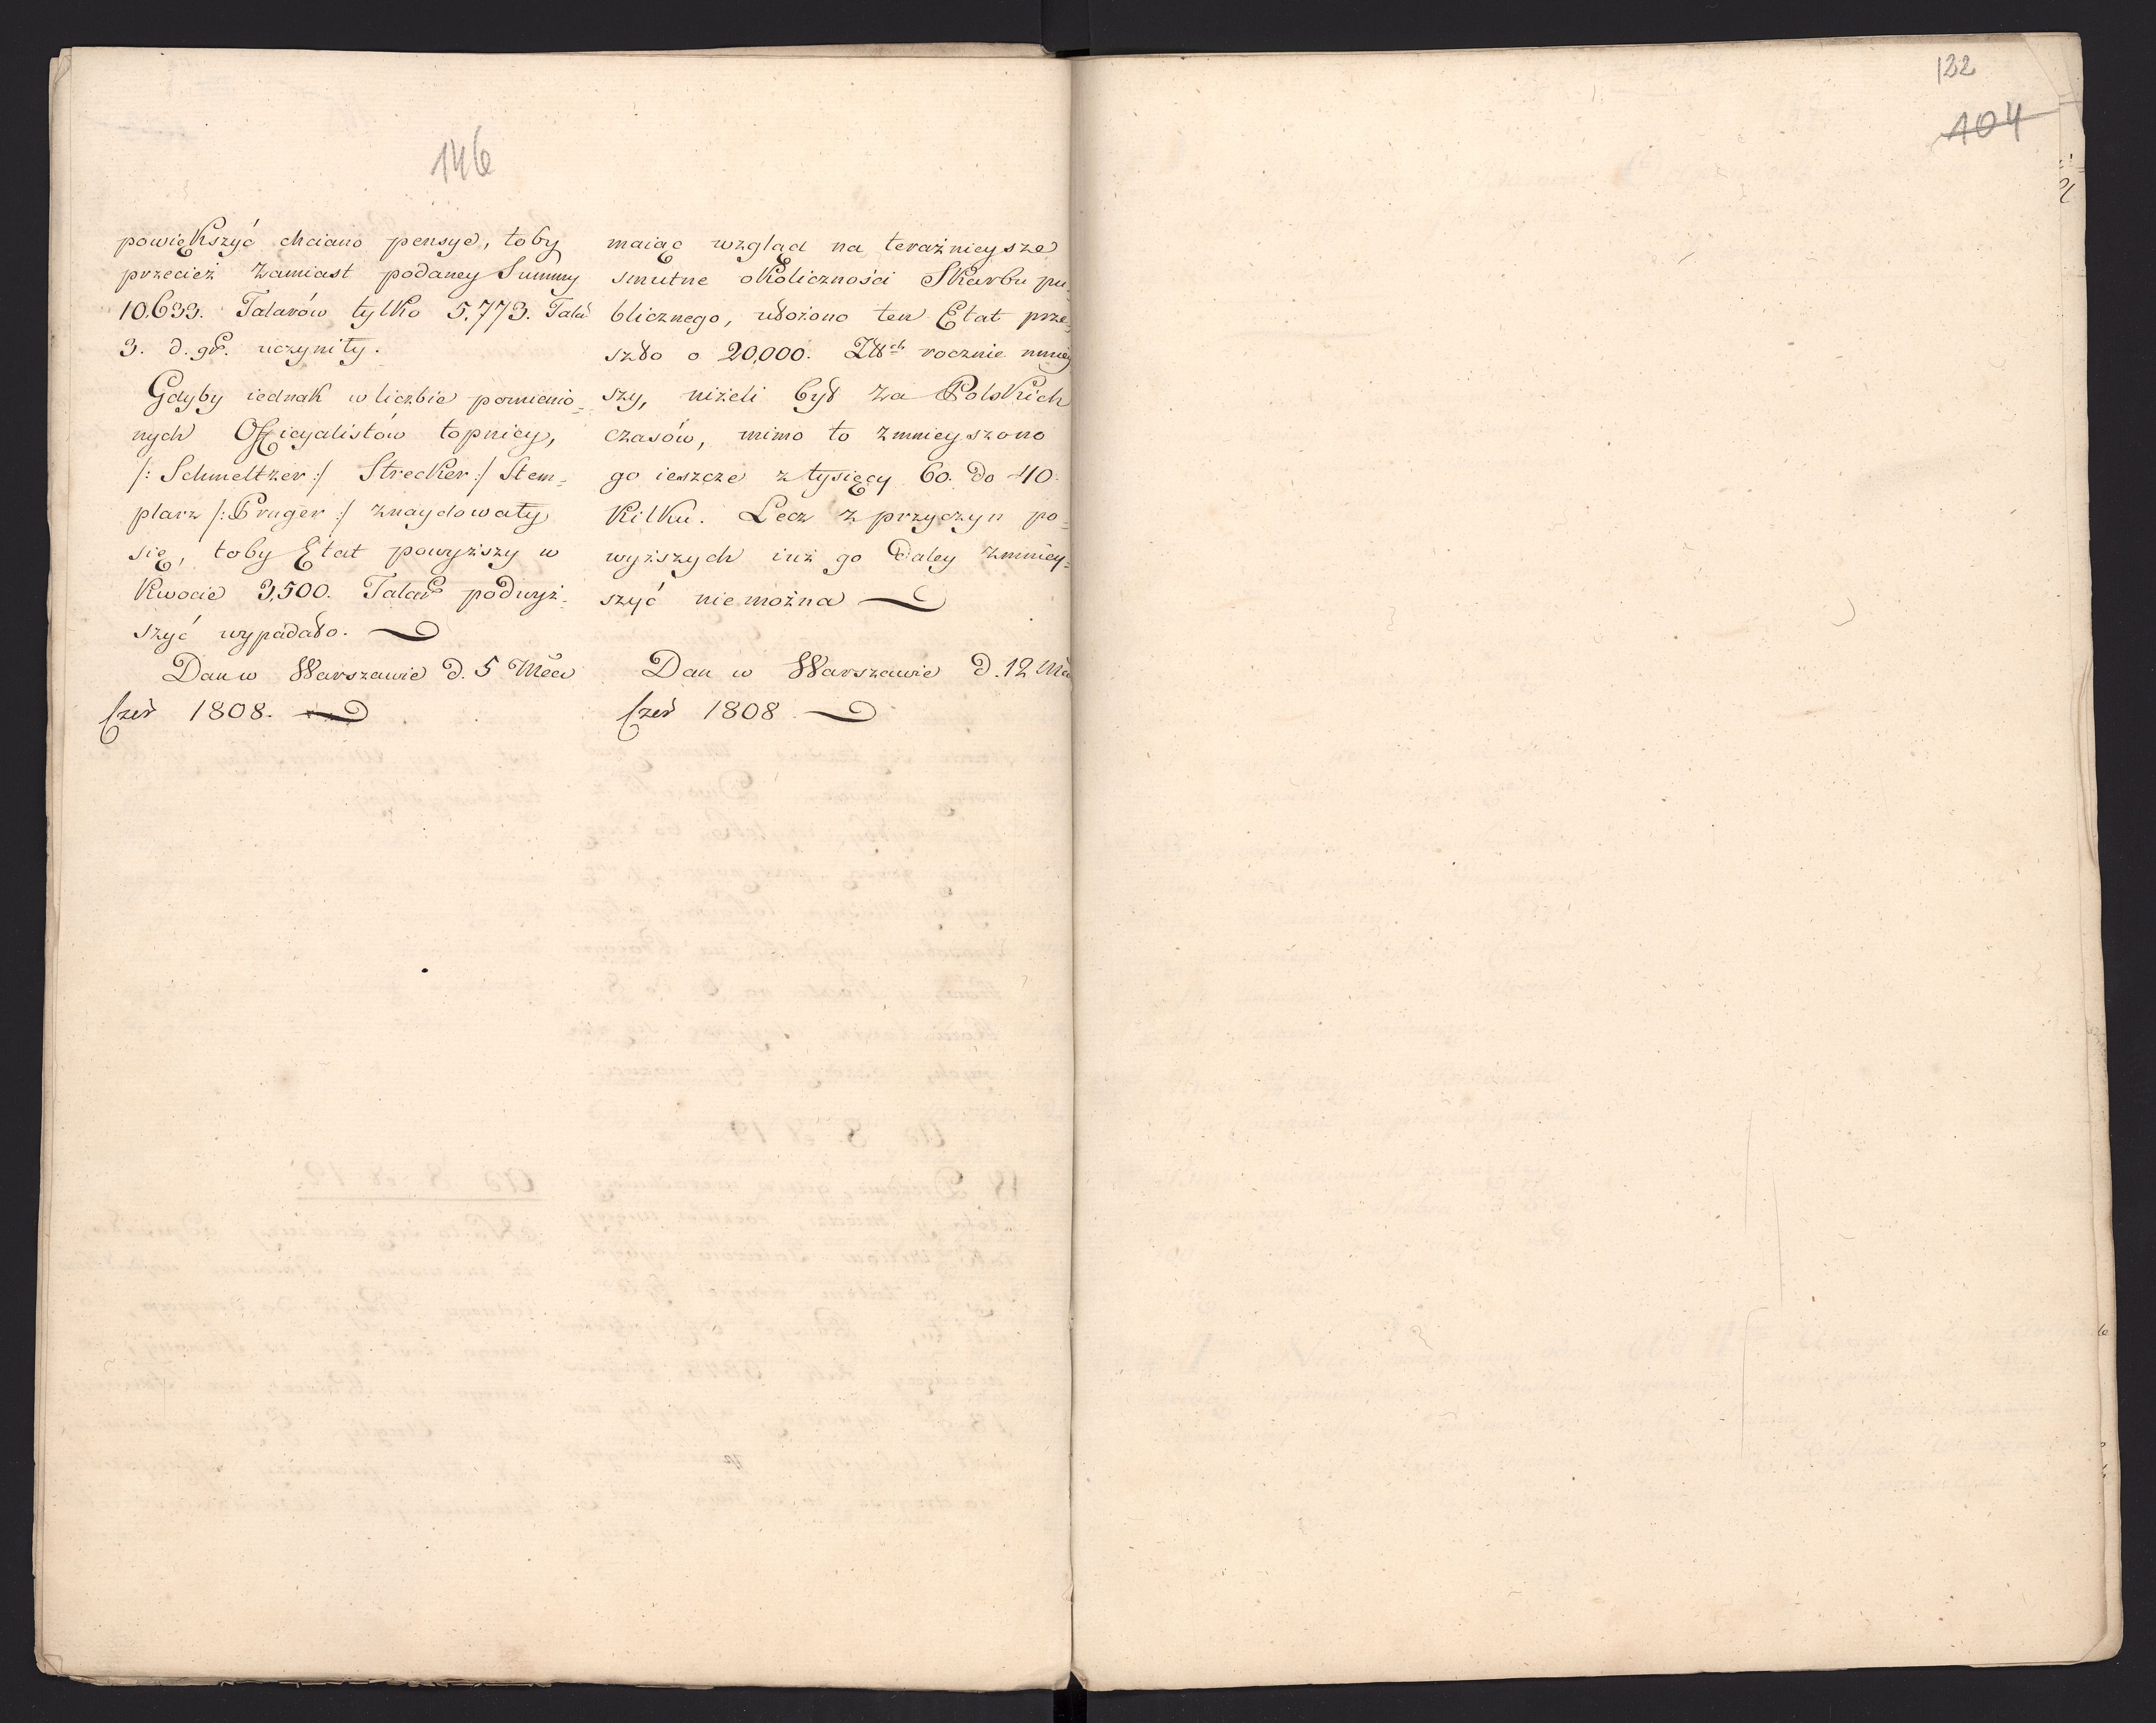 146
powiększyć chciano pensye, toby
przecież zamiast podaney Summy
10,633. Talarów tylko 5,773. Talar
3. d. gr. uczyniły.
Gdyby iednak w liczbie pomienio=
nych Officyalistów topnicy,
/: Schmeltzer :/ Strecker :/ Stem=
plarz /: Pruger :/ znaydowały
się, toby Etat powyższy w
kwocie 3,500. Talar podwyż=
szyć wypadało.
Dan w Warszawie d. 5 Mca
Czer 1808.
maiąc wzgląd na teraźnieysze
smutne okoliczności Skarbu pu=
blicznego, ułożono ten Etat prze=
szło o 20,000. Złch rocznie mniey
szy, niżeli był za Polskich
czasów, mimo to zmnieyszono
go ieszcze z tysięcy 60. do 40.
kilku. Lecz z przyczyn po=
wyższych iuż go daley zmniey=
szyć nie można
Dan w Warszawie d. 12 Mca
Czer 1808
122
104